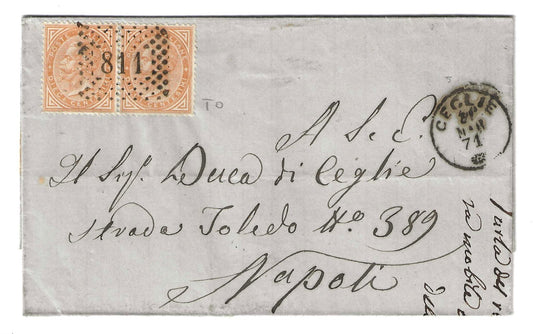 811
TO
CEGLIE
MAR
71
A S. E.
Il Sig. Duca di Ceglie
Strada Toledo No. 389
Napoli